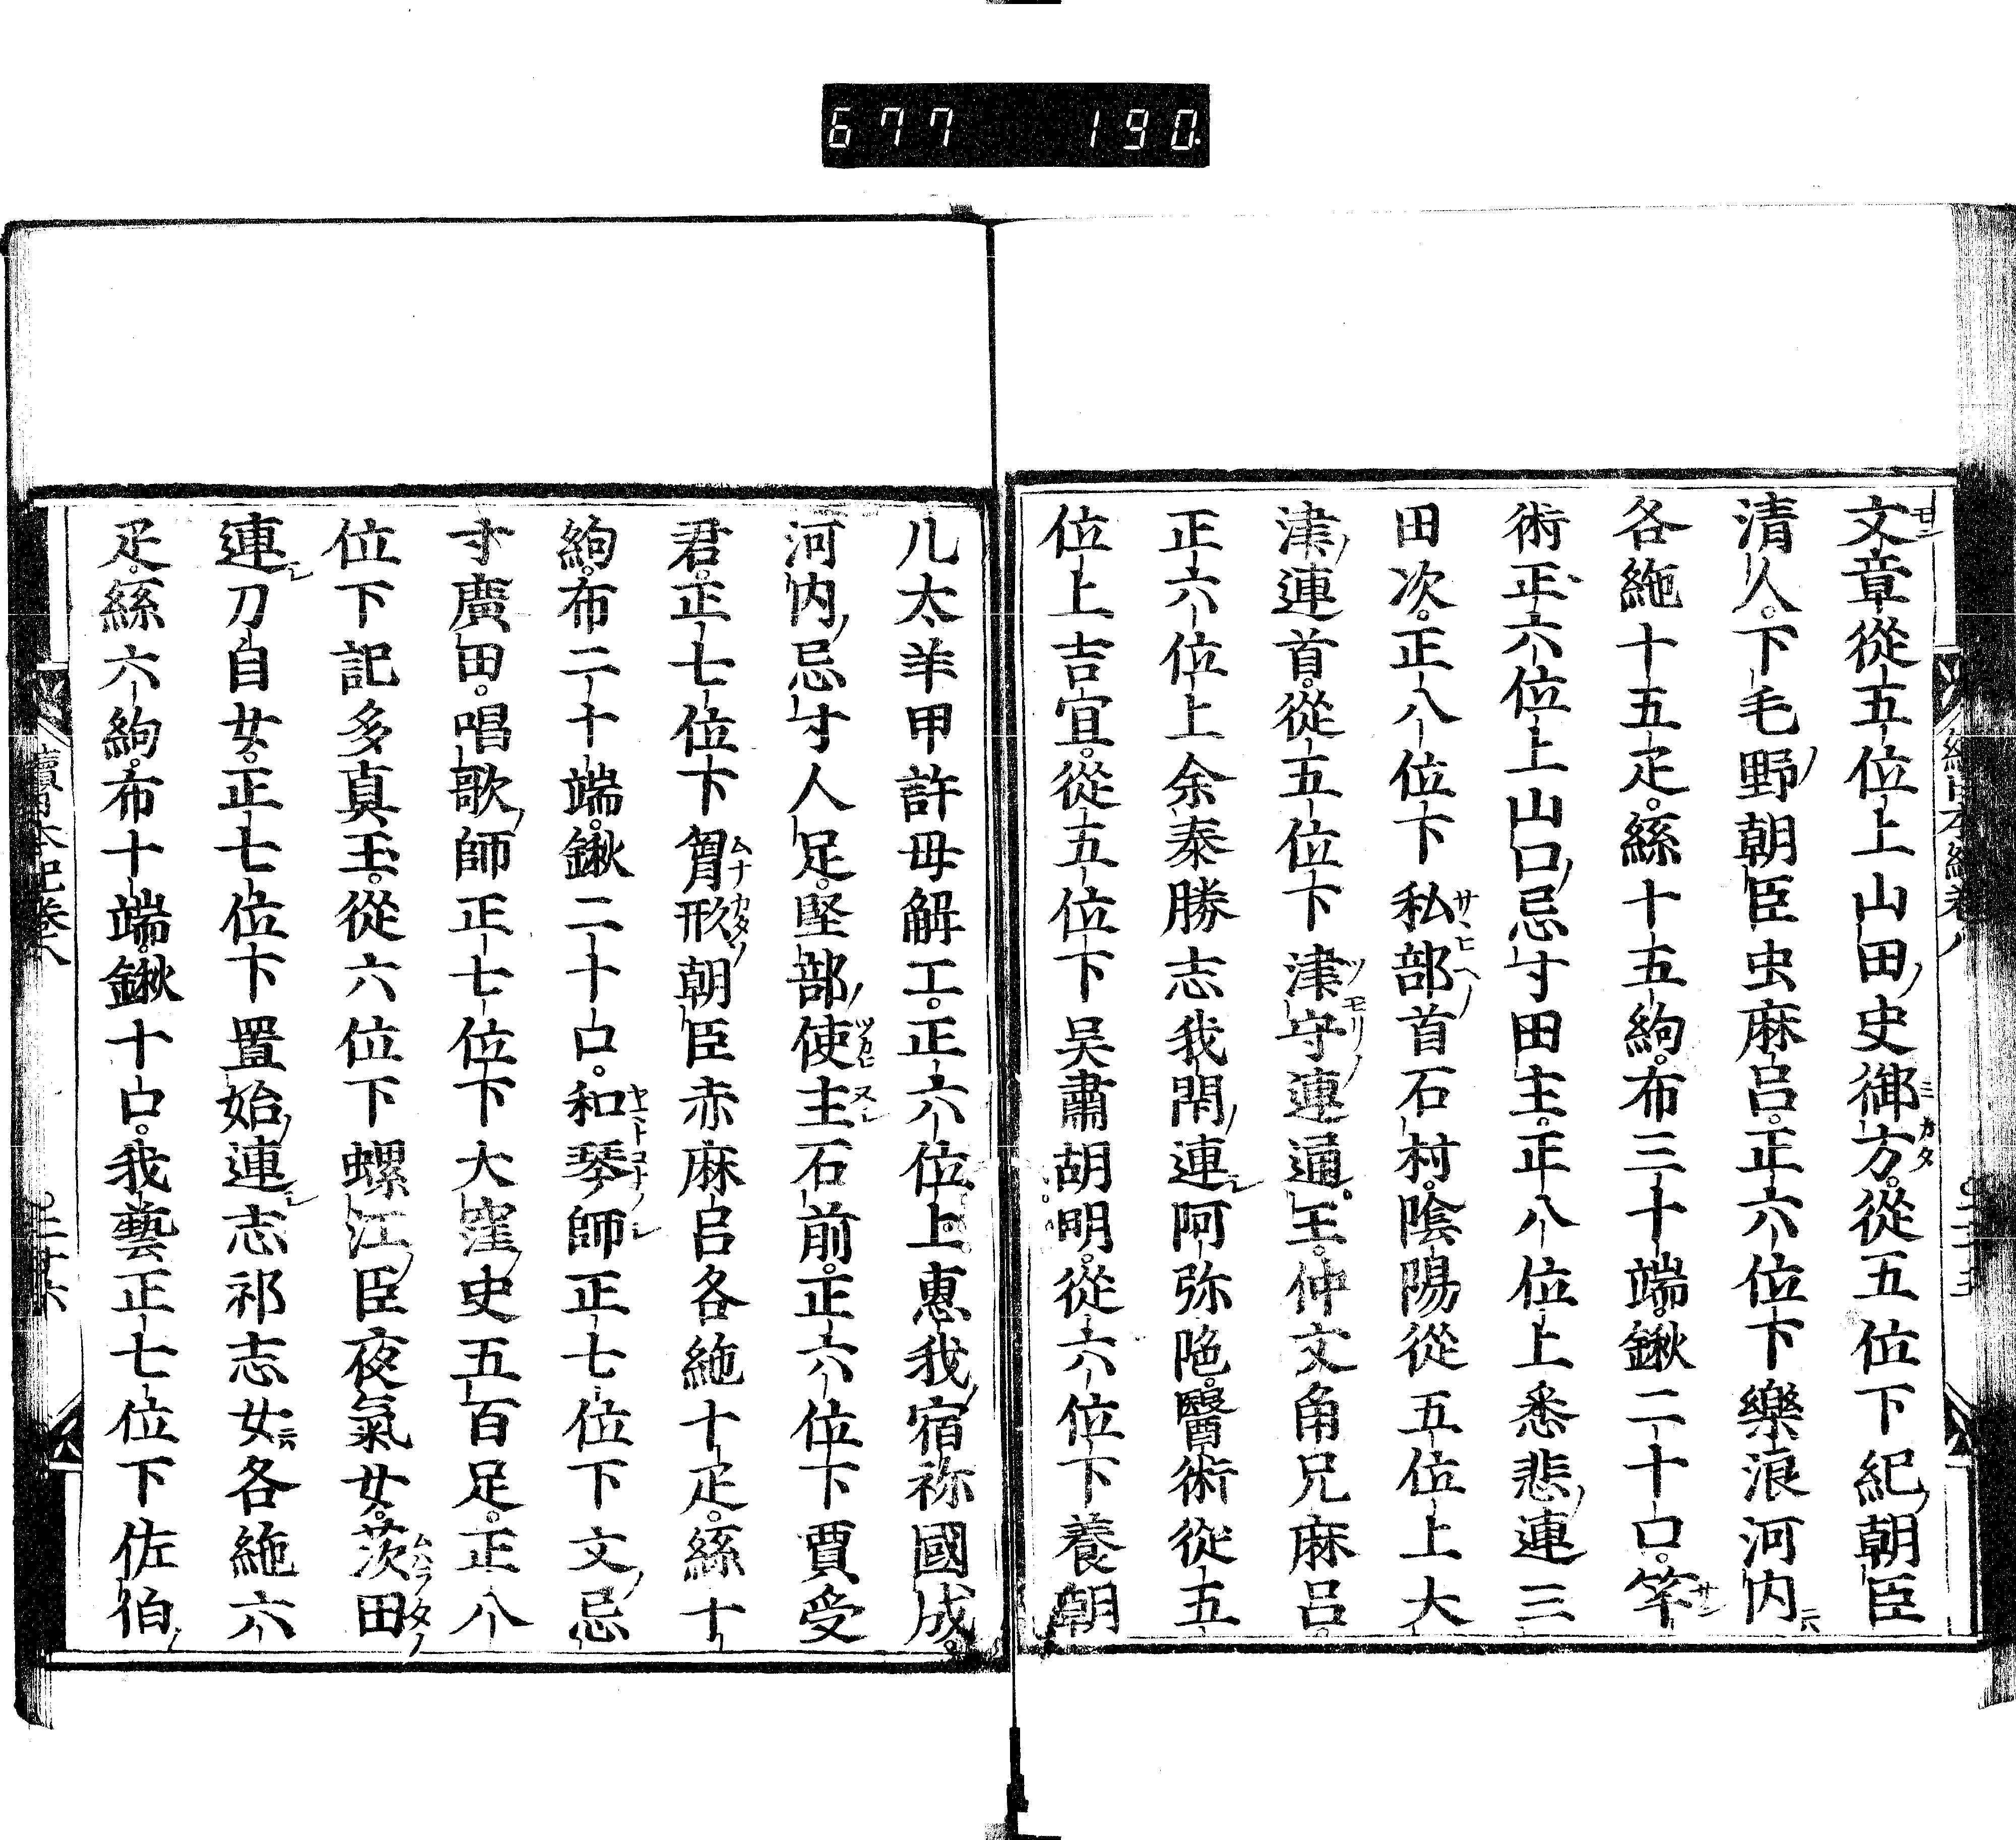 677 190
文章從五位上山田史御方。從五位下紀朝臣
清人。下毛野朝臣虫麻呂。正六位下樂浪河内
各絁十五疋。絲十五絇。布三十端。鍬二十口。筭
術正六位上山口忌寸田主。正八位上悉悲連三
田次。正八位下私部首石村。陰陽從五位上大
津連首。從五位下津守連通。王仲文角兄麻呂。
正六位上余泰勝志我閇連阿弥陁。醫術從五
位上吉宜。從五位下吴肅胡明。從六位下養朝
儿太羊甲許母解工。正六位上惠我宿祢國成。
河内忌寸人足。堅部使主石前。正六位下賈受
君。正七位下胷形朝臣赤麻呂各絁十疋。絲十
絇。布二十端。鍬二十口。和琴師正七位下文忌
寸廣田。唱歌師正七位下大窪史五百足。正八
位下記多真玉。從六位下螺江臣夜氣女。茨田
連刀自女。正七位下置始連志祁志女各絁六
疋。絲六絇。布十端。鍬十口。我藝正七位下佐伯